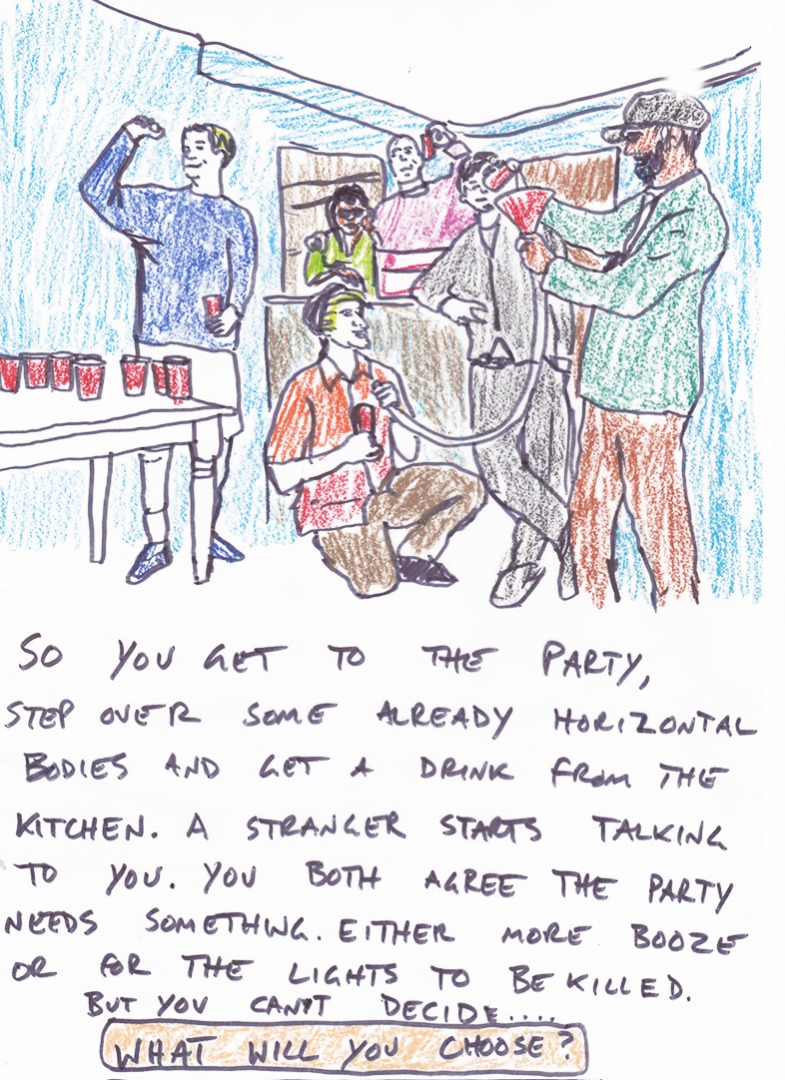 SO YOU GET TO THE PARTY,
STEP OVER SOME ALREADY HORIZONTAL
BODIES AND GET A DRINK FROM THE
KITCHEN. A STRANGER STARTS TALKING
TO YOU. YOU BOTH AGREE THE PARTY
NEEDS SOMETHING. EITHER MORE BOOZE
OR FOR THE LIGHTS TO BE KILLED.
BUT YOU CAN'T DECIDE....
WHAT WILL YOU CHOOSE?